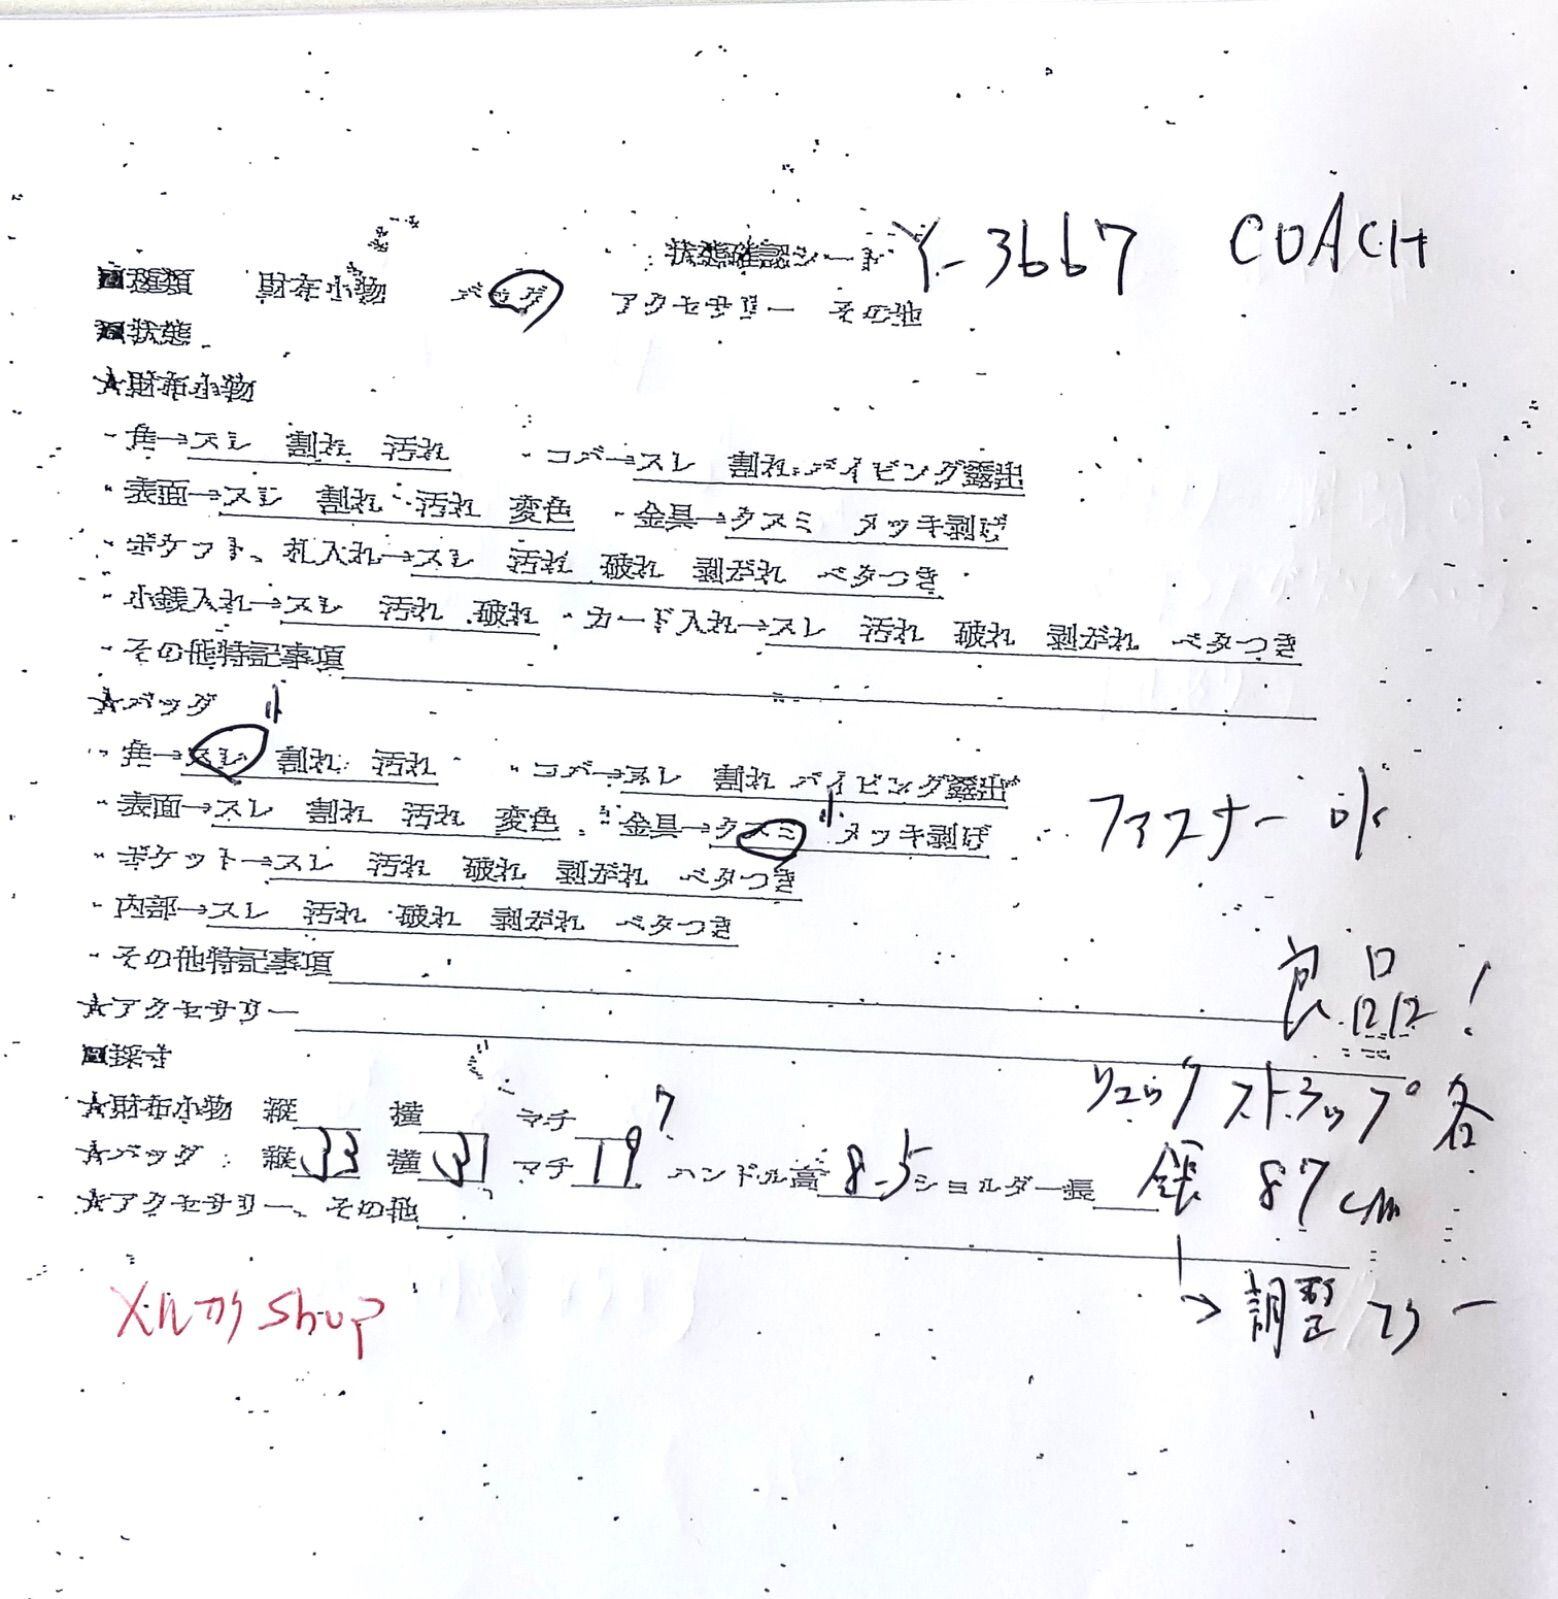 状態確認シート Y-3667 COACH
■種類 財布小物 バッグ アクセサリー その他
■状態
★財布小物
・角→スレ 割れ 汚れ ・コバ→スレ 割れ パイピング露出
・表面→スレ 割れ 汚れ 変色 ・金具→クスミ メッキ剥げ
・ポケット、札入れ→スレ 汚れ 破れ 剥がれ ベタつき
・小銭入れ→スレ 汚れ 破れ ・カード入れ→スレ 汚れ 破れ 剥がれ ベタつき
・その他特記事項
★バッグ 小
・角→スレ 割れ 汚れ ・コバ→スレ 割れ パイピング露出
・表面→スレ 割れ 汚れ 変色 ・金具→クスミ 小 メッキ剥げ ファスナー ok
・ポケット→スレ 汚れ 破れ 剥がれ ベタつき
・内部→スレ 汚れ 破れ 剥がれ ベタつき
・その他特記事項 良品!
★アクセサリー
■採寸
リュックストラップ各
★財布小物 縦 横 マチ 7
★バッグ 縦33 横31 マチ19 ハンドル高8.5 ショルダー長 全長 87cm
★アクセサリー、その他
→調整フリー
shop